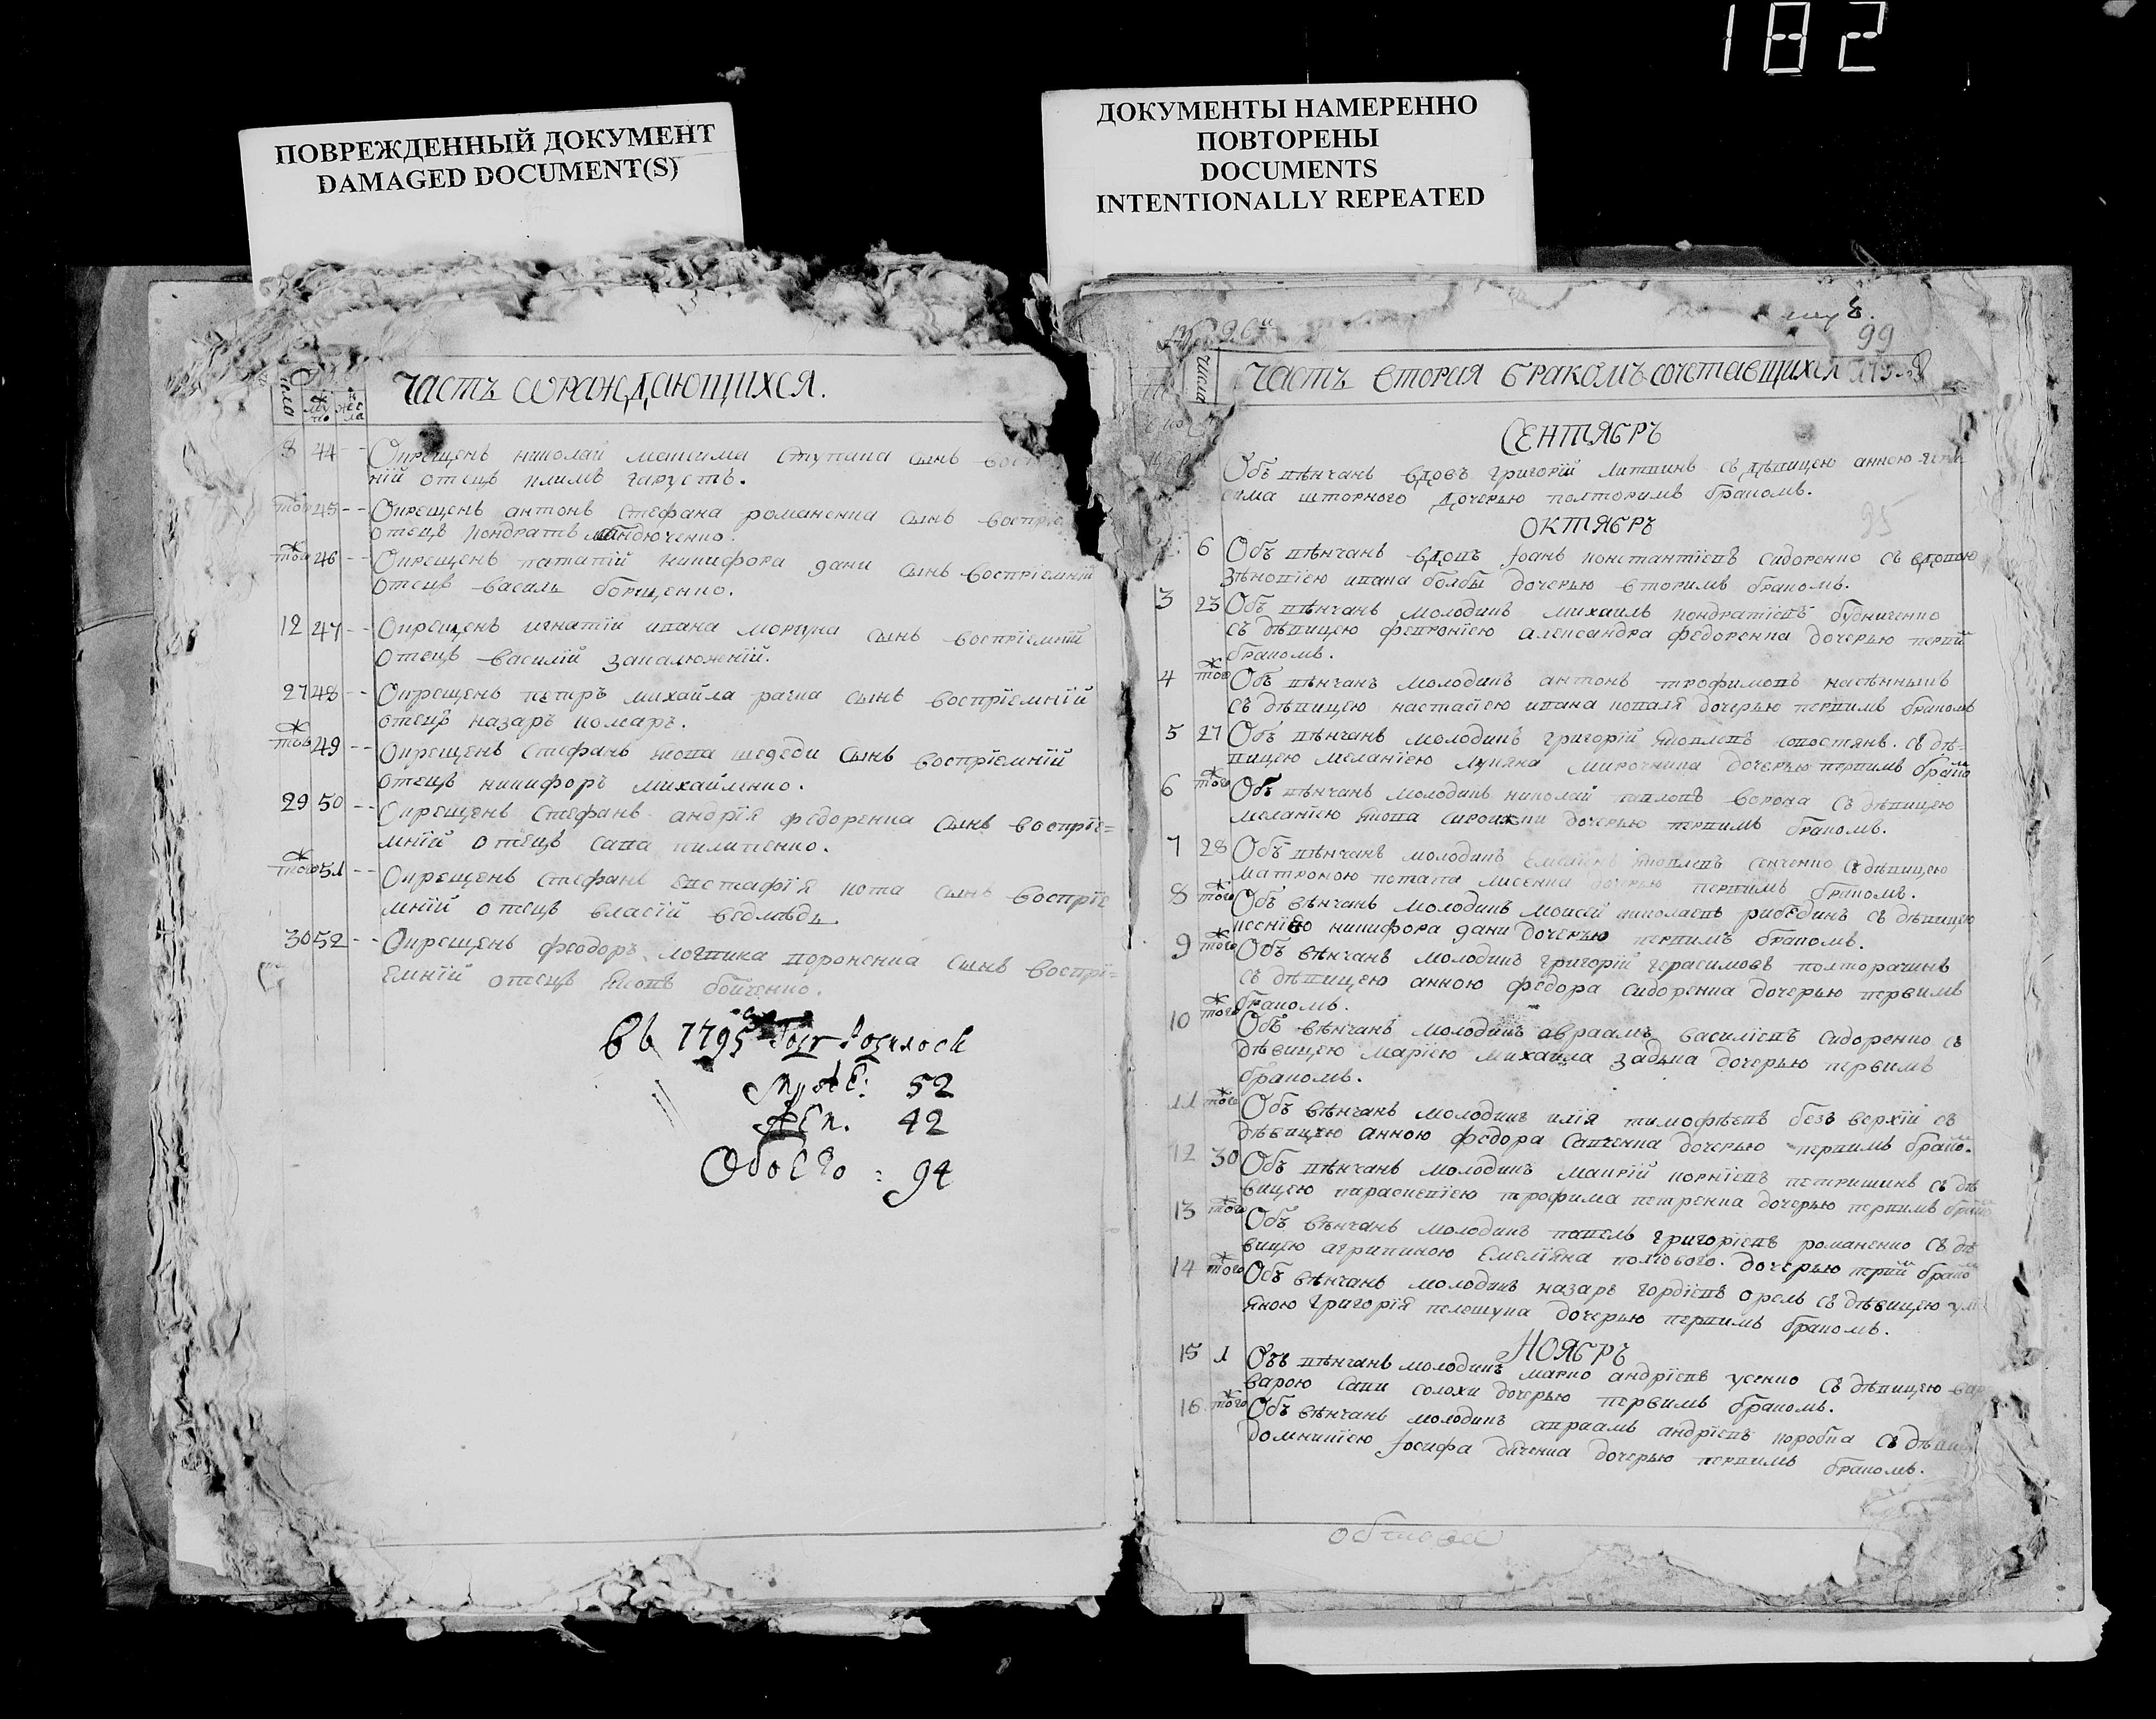 182
ПОВРЕЖДЕННЫЙ ДОКУМЕНТ
DAMAGED DOCUMENT(S)
ДОКУМЕНТЫ НАМЕРЕННО
ПОВТОРЕНЫ
DOCUMENTS
INTENTIONALLY REPEATED
Часть ораждающихся.
8 44 -- Окрещенъ николай максима ступака сынъ
ній отецъ климъ
того 45 -- Окрещенъ антонъ стефана романенка сынъ
отецъ кондратъ
того 46 -- Окрещенъ игнатій никифора дани сынъ воспріемній
отецъ василь борщенко.
12 47 -- Окрещенъ игнатій ивана моргуна сынъ воспріемній
отецъ василій
27 48 -- Окрещенъ петръ михайла рачка сынъ воспріемній
отецъ назаръ комаръ.
того 49 -- Окрещенъ стефанъ якова шедеди сынъ воспріемній
отецъ никифоръ михайленко.
29 50 -- Окрещенъ стефанъ андрія федоренка сынъ воспріе=
мній отецъ сава пилипенко.
того 51 -- Окрещенъ стефанъ евстафія кота сынъ воспріе
мній отецъ власій ведмѣдь
30 52 -- Окрещенъ феодоръ логвина вороненка сынъ воспрі=
емній отецъ яковъ бойченко.
въ 1795 году родилось
муж: 52
жен. 42
Обоего: 94
99
Часть вторая бракомъ сочетавщихся
Сентябръ
Объ вѣнчанъ вдовъ григорій литвинъ съ дѣвицею анною
сима шторного дочерью повторимъ бракомъ.
95
Октябръ
6 Объ вѣнчанъ вдовъ Іоанъ константіевъ сидоренко съ вдовою
зѣновіею ивана болбы дочерью вторимъ бракомъ.
3 23 Объ вѣнчанъ молодикъ михаилъ кондратіевъ будниченко
съ дѣвицею февроніею александра федоренка дочерью первій
бракомъ.
4 того Объ вѣнчанъ молодикъ антонъ трофимовъ
съ дѣвицею настасіею ивана коваля дочерью первимъ бракомъ
5 27 Объ вѣнчанъ молодикъ григорій яковлевъ съ дѣ=
вицею меланіею лукяна мирочника дочерью первимъ брако
6 того Объ вѣнчанъ молодикъ николай павловъ ворона съ дѣвицею
меланіею якова дочерью первимъ бракомъ.
7 28 Объ вѣнчанъ молодикъ яковлевъ сенченко съ дѣвицею
матроною потапа лисенка дочерью первимъ бракомъ.
8 того Объ вѣнчанъ молодикъ моисей николаевъ съ дѣвицею
ксеніею никифора дани дочерью первимъ бракомъ.
9 того Объ вѣнчанъ молодикъ григорій герасимовъ
съ дѣвицею анною федора сидоренка дочерью первимъ
бракомъ.
10 того Объ вѣнчанъ молодикъ авраамъ василіевъ сидоренко съ
дѣвицею маріею михайла дочерью первимъ
бракомъ.
11 того Объ вѣнчанъ молодикъ илія тимофѣевъ безъ верхій съ
дѣвицею анною федора савченка дочерью первимъ брако.
12 30 Объ вѣнчанъ молодикъ маврій корніевъ петришинъ съ дѣ
вицею параскевіею трофима петренка дочерью первимъ брако
13 того Объ вѣнчанъ молодикъ павелъ григоріевъ романенко съ дѣ
вицею агрипиною емеліяна дочерью первій брако
14 того Объ вѣнчанъ молодикъ назаръ гордіевъ орелъ съ дѣвицею
яною григорія пелешука дочерью первимъ бракомъ.
Ноябръ
15 1 Объ вѣнчанъ молодикъ марко андріевъ усенко съ дѣвицею вар
варою сави солохи дочерью первимъ бракомъ.
16 того Объ вѣнчанъ молодикъ авраамъ андріевъ коробка съ
домникіею Іосифа дяченка дочерью первимъ бракомъ.